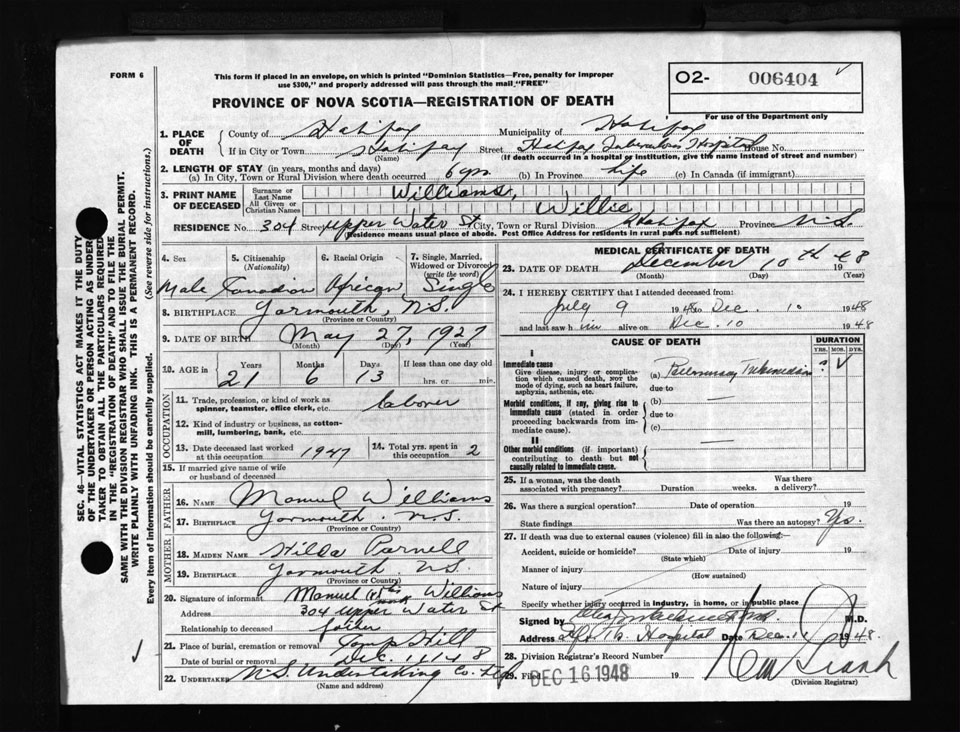 FORM 6
This form if placed in an envelope, on which is printed "Dominion Statistics—Free, penalty for improper
use $300," and properly addressed will pass through the mail "FREE"
O2- 006404
For use of the Department only
PROVINCE OF NOVA SCOTIA—REGISTRATION OF DEATH
1. PLACE OF DEATH
County of Halifax Municipality of Halifax
If in City or Town Halifax Street Halifax Tuberculosis Hospital House No.
(Name) (If death occurred in a hospital or institution, give the name instead of street and number)
2. LENGTH OF STAY (in years, months and days)
(a) In City, Town or Rural Division where death occurred 6 yrs (b) In Province Life (c) In Canada (if immigrant)
3. PRINT NAME OF DECEASED
Surname or Last Name Williams,
All Given or Christian Names Willie,
RESIDENCE No. 304 Street Upper Water St. City, Town or Rural Division Halifax Province N.S.
(Residence means usual place of abode. Post Office Address for residents in rural parts not sufficient)
4. Sex 5. Citizenship (Nationality) 6. Racial Origin 7. Single, Married, Widowed or Divorced (write the word)
Male Canadian African Single
8. BIRTHPLACE Yarmouth, N.S.
(Province or Country)
9. DATE OF BIRTH May 27, 1927
(Month) (Day) (Year)
10. AGE in Years Months Days If less than one day old
21 6 13 hrs. or min.
OCCUPATION
11. Trade, profession, or kind of work as
spinner, teamster, office clerk, etc. laborer
12. Kind of industry or business, as cotton-
mill, lumbering, bank, etc.
13. Date deceased last worked at this occupation 1947 14. Total yrs. spent in this occupation 2
15. If married give name of wife
or husband of deceased
FATHER
16. NAME Manuel Williams
17. BIRTHPLACE Yarmouth. N.S.
(Province or Country)
MOTHER
18. MAIDEN NAME Hilda Parnell
19. BIRTHPLACE Yarmouth. N.S.
(Province or Country)
20. Signature of informant Manuel (his mark) Williams
Address 304 Upper Water St
Relationship to deceased father
21. Place of burial, cremation or removal Camp Hill
Date of burial or removal Dec. 11 1948
22. UNDERTAKER N.S. Undertaking Co.
(Name and address)
MEDICAL CERTIFICATE OF DEATH
23. DATE OF DEATH December 10th 1948
(Month) (Day) (Year)
24. I HEREBY CERTIFY that I attended deceased from:
July 9 1948 to Dec. 10 1948
and last saw him alive on Dec. 10 1948
CAUSE OF DEATH
DURATION
YRS. MOS. DYS.
I
Immediate cause
Give disease, injury or complica-
tion which caused death, NOT the
mode of dying, such as heart failure,
asphyxia, asthenia, etc.
(a) Pulmonary Tuberculosis ? ✓
due to
Morbid conditions, if any, giving rise to
immediate cause (stated in order
proceeding backwards from im-
mediate cause).
(b) —
due to
(c)
II
Other morbid conditions (if important)
contributing to death but not
causally related to immediate cause.
—
25. If a woman, was the death
associated with pregnancy? Duration weeks. Was there a delivery?
26. Was there a surgical operation? Date of operation 19
State findings Was there an autopsy? Yes.
27. If death was due to external causes (violence) fill in also the following:
Accident, suicide or homicide? Date of injury 19
(State which)
Manner of injury
(How sustained)
Nature of injury
Specify whether injury occurred in industry, in home, or in public place
Signed by M.D.
Address Hfx Tb. Hospital Date Dec. 1948.
28. Division Registrar's Record Number
29. Filed DEC 16 1948 19
(Division Registrar)
SEC. 46—VITAL STATISTICS ACT MAKES IT THE DUTY
OF THE UNDERTAKER OR PERSON ACTING AS UNDER-
TAKER TO OBTAIN ALL THE PARTICULARS REQUIRED
IN THE "REGISTRATION OF DEATH" AND TO FILE THE
SAME WITH THE DIVISION REGISTRAR WHO SHALL ISSUE THE BURIAL PERMIT.
WRITE PLAINLY WITH UNFADING INK. THIS IS A PERMANENT RECORD.
Every item of Information should be carefully supplied. (See reverse side for instructions.)